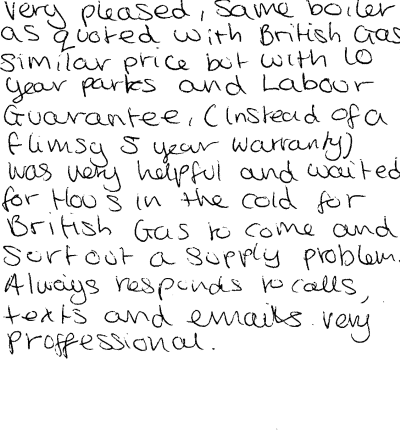 very pleased, same boiler
as quoted with British Gas
similar price but with 10
year parts and Labour
Guarantee, (Instead of a
flimsy 5 year warranty)
was very helpful and waited
for Hou s in the cold for
British Gas to come and
Sort out a supply problem.
Always responds to calls,
texts and emails very
proffessional.